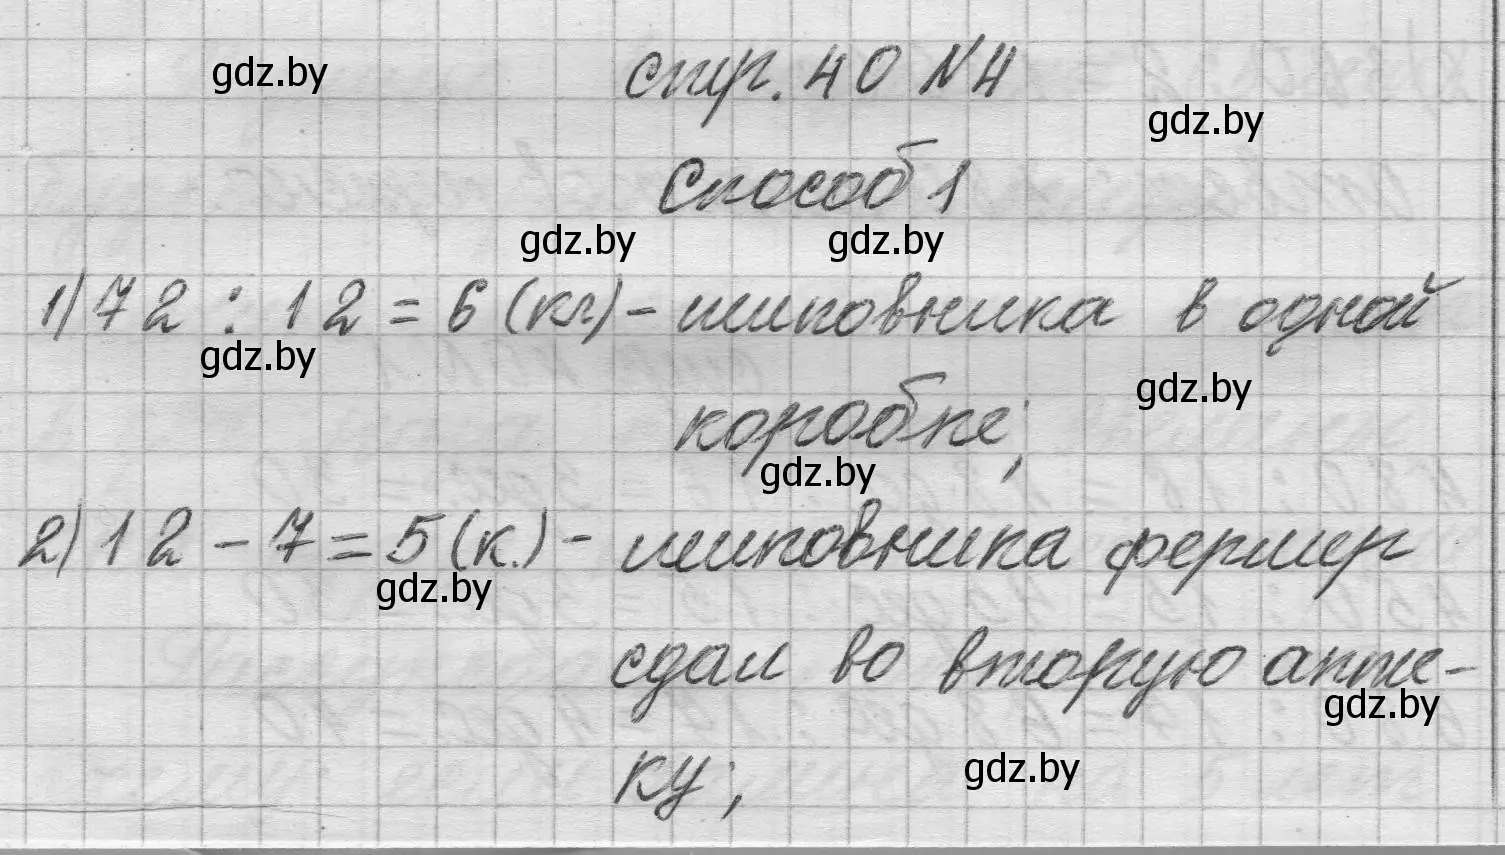 gdz.by
стр. 40 N4
gdz.by
Способ 1
gdz.by gdz.by
1) 72 : 12 = 6 (кг) - шиповника в одной
gdz.by
gdz.by
коробке;
gdz.by
2) 12 - 7 = 5 (к.) - шиповника фермер
gdz.by
сдал во вторую апте-
gdz.by
ку;
gdz.by